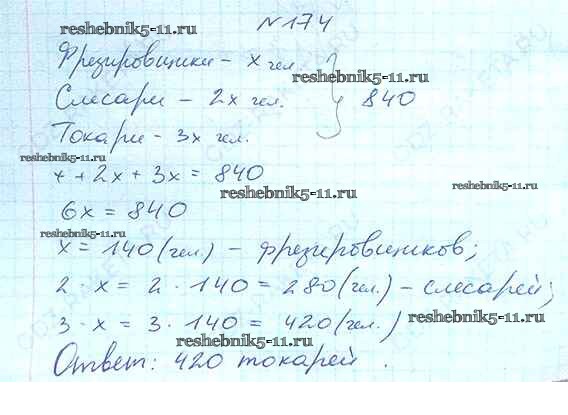 №174
reshebnik5-11.ru
Фрезировщики - x чел.
reshebnik5-11.ru
Слесари - 2x чел. } 840
Токари - 3x чел.
reshebnik5-11.ru
x + 2x + 3x = 840
reshebnik5-11.ru
reshebnik5-11.ru
6x = 840
reshebnik5-11.ru
x = 140 (чел.) - фрезировщиков;
2 · x = 2 · 140 = 280 (чел.) - слесарей;
3 · x = 3 · 140 = 420 (чел.)
reshebnik5-11.ru
reshebnik5-11.ru
Ответ: 420 токарей.